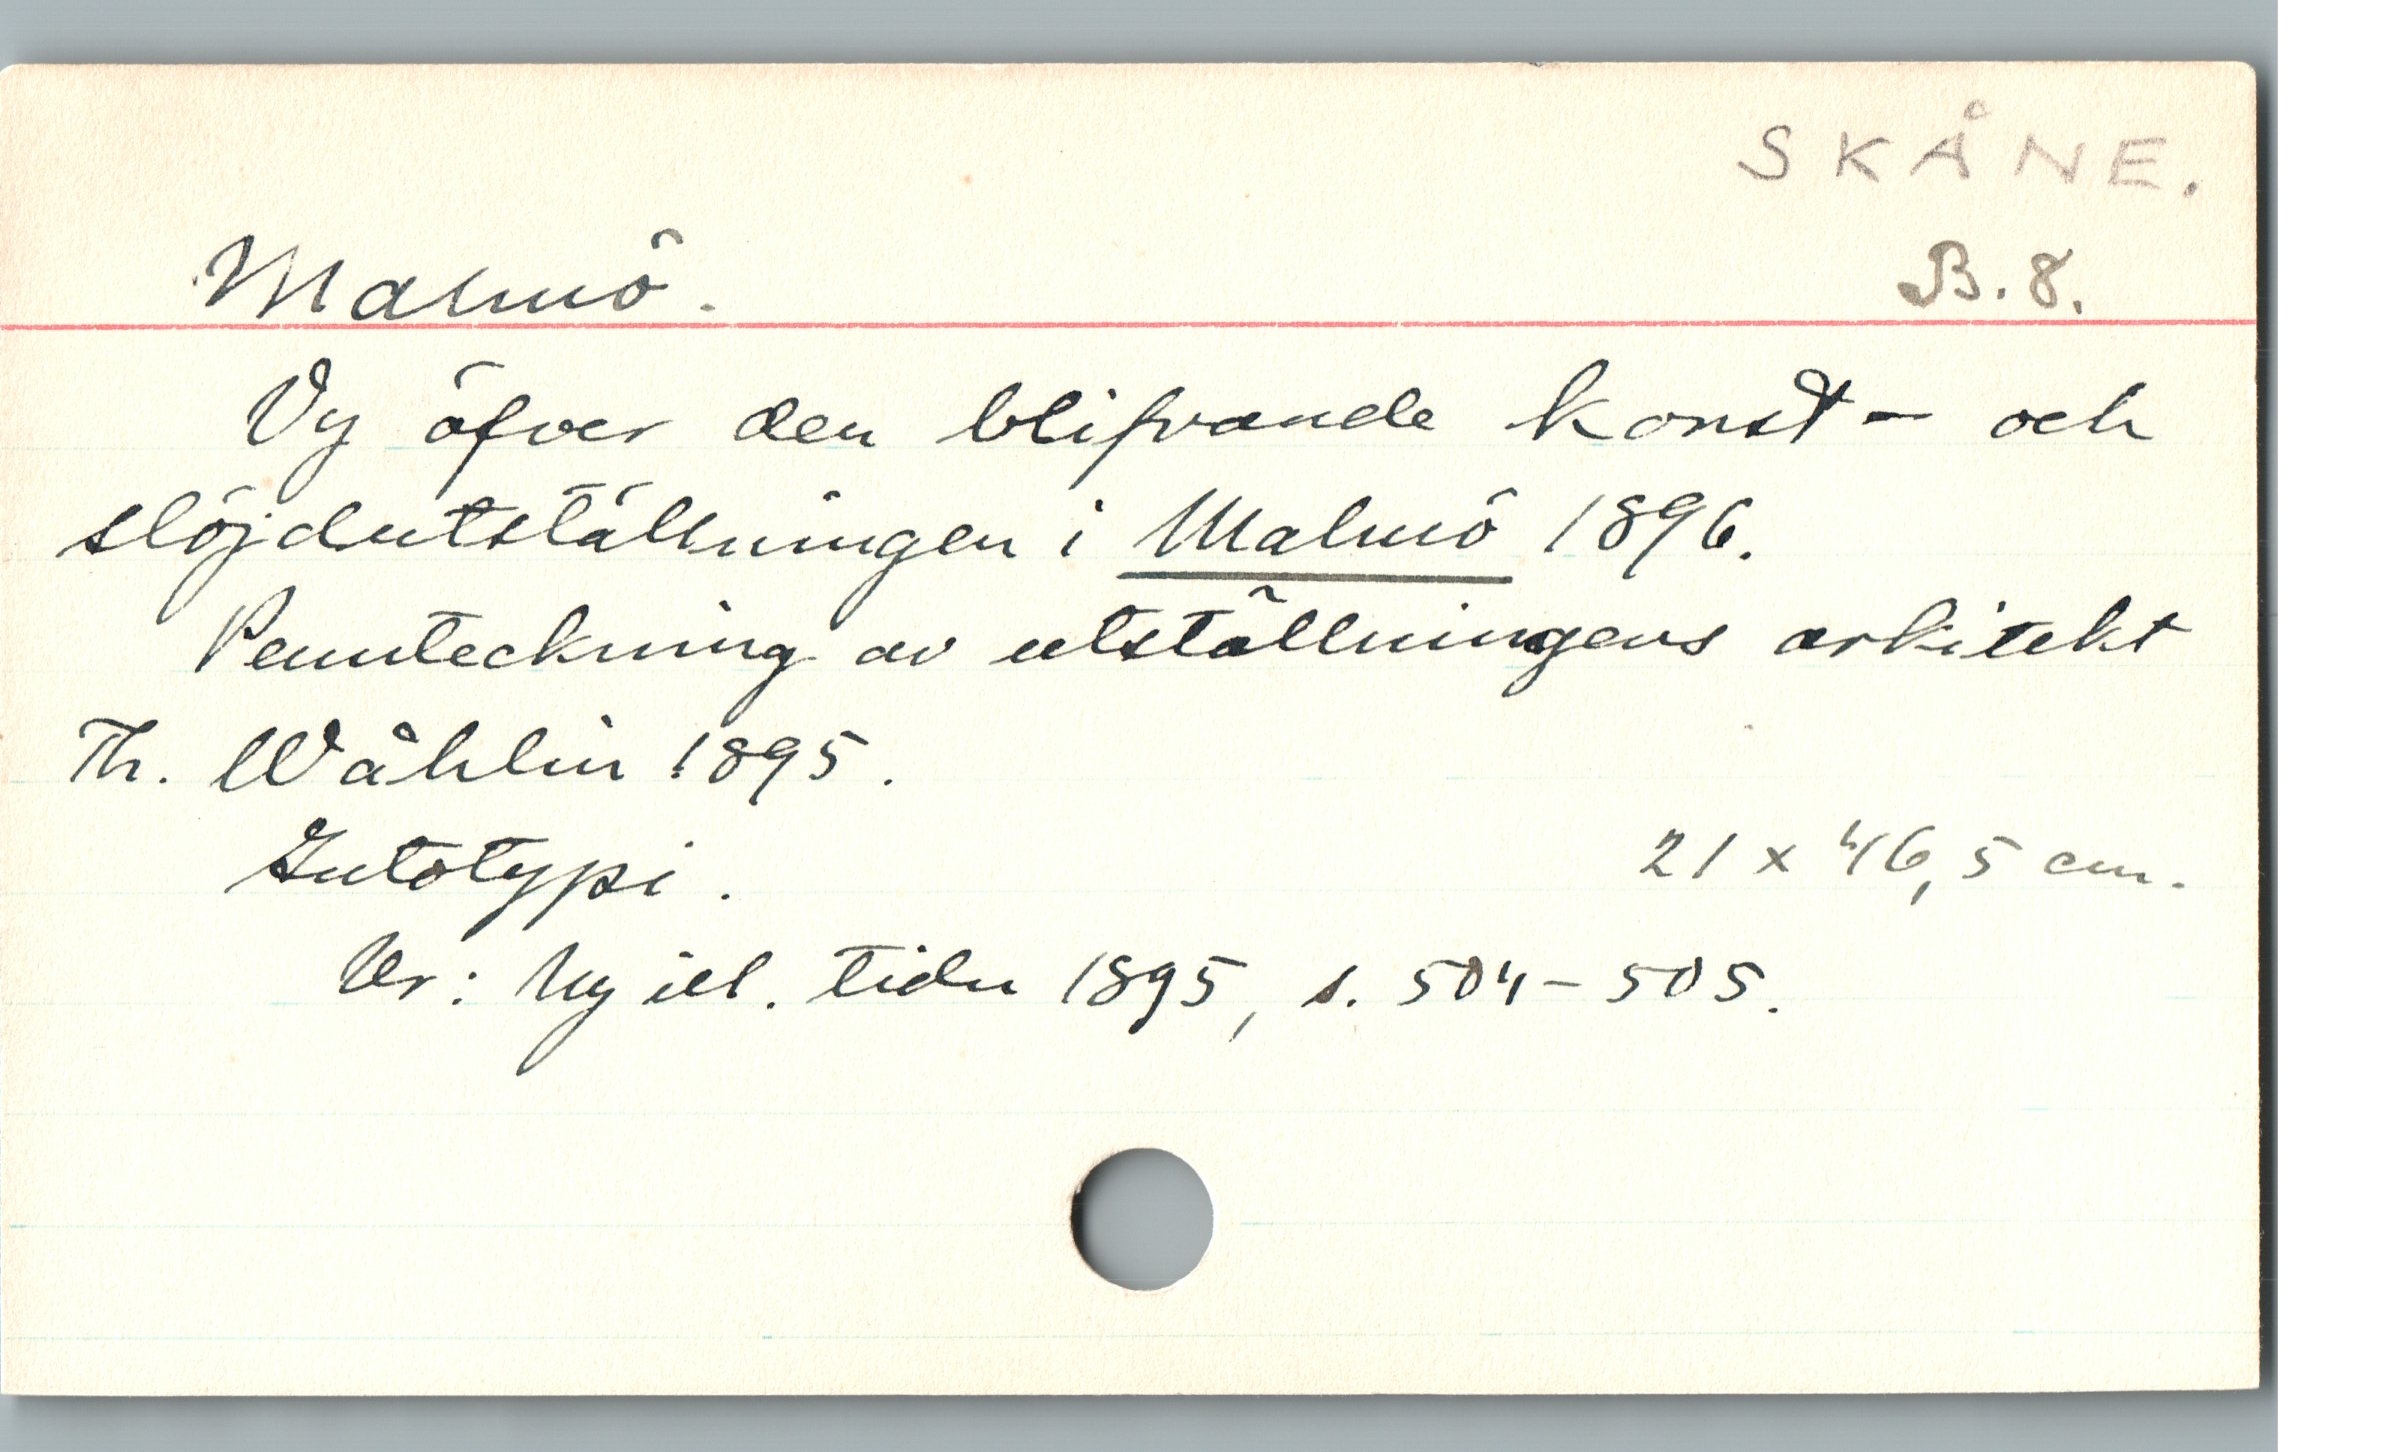 SKÅNE.
Malmö. B. 8.
Vy öfver den blifvande konst- och
slöjdutställningen i Malmö 1896.
Pennteckning av utställningens arkitekt
Th. Wåhlin 1895.
Autotypi. 21 x 46,5 cm.
Ur: Ny ill. tidn 1895, s. 504-505.